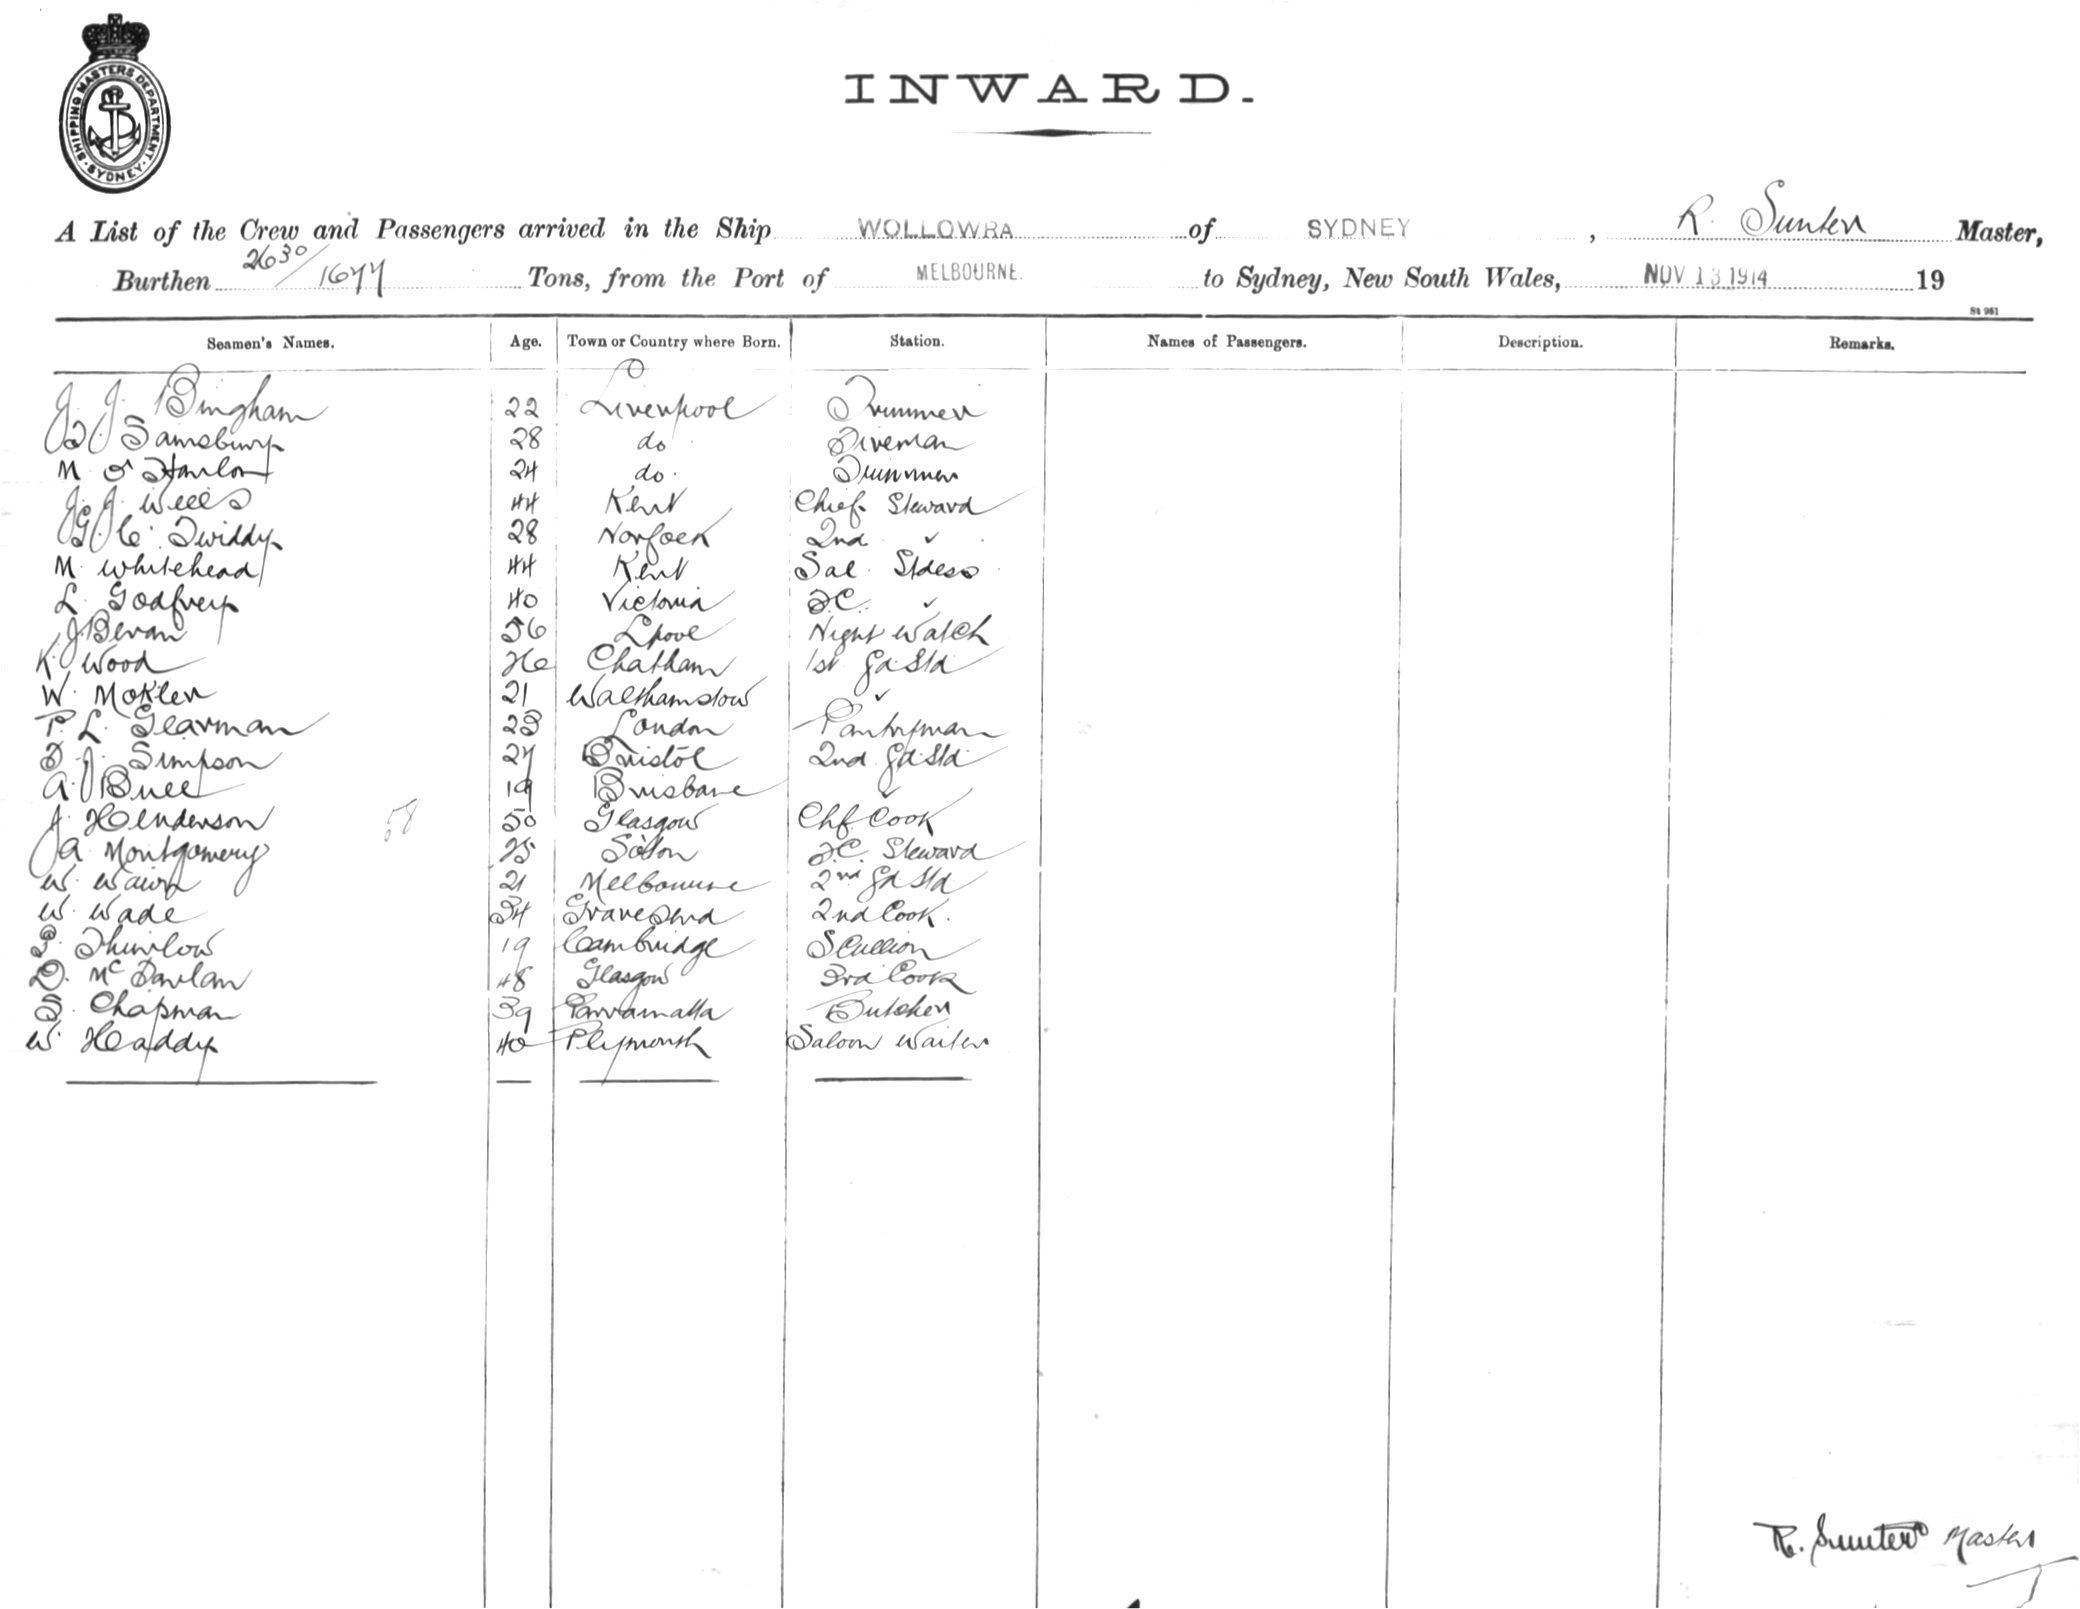 SHIPPING MASTERS DEPARTMENT · SYDNEY ·
INWARD.
A List of the Crew and Passengers arrived in the Ship WOLLOWRA of SYDNEY, R. Sunter Master,
Burthen 2630/1677 Tons, from the Port of MELBOURNE. to Sydney, New South Wales, NOV 13 1914 19
St 961
Seamen's Names. Age. Town or Country where Born. Station. Names of Passengers. Description. Remarks.
J. J. Bingham 22 Liverpool Trimmer
J. Samsbury 28 do Fireman
M. O'Hanlon 24 do. Trimmer
J. J. Wells 44 Kent Chief Steward
G. C. Twiddy 28 Norfolk 2nd ✓
M. Whitehead 44 Kent Sal. Stdess
L. Godfrey 40 Victoria F.C. ✓
J. Bevan 56 Lpool Night Watch
K. Wood 26 Chatham 1st Gd Std
W. Mokler 21 Walthamstow ✓
P. L. Glarman 23 London Pantryman
F. J. Simpson 27 Bristol 2nd Gd Std
A. Bull 19 Brisbane ✓
J. Henderson 58 50 Glasgow Chf. Cook
J. A. Montgomery 25 Soton F.C. Steward
W. 21 Melbourne 2nd Gd Std
W. Wade 34 Gravesend 2nd Cook.
Thurlow 19 Cambridge Scullion
D. McFarlan 48 Glasgow 3rd Cook
S. Chapman 39 Parramatta Butcher
W. Headdy 40 Plymouth Saloon Waiter
R. Sunter Master